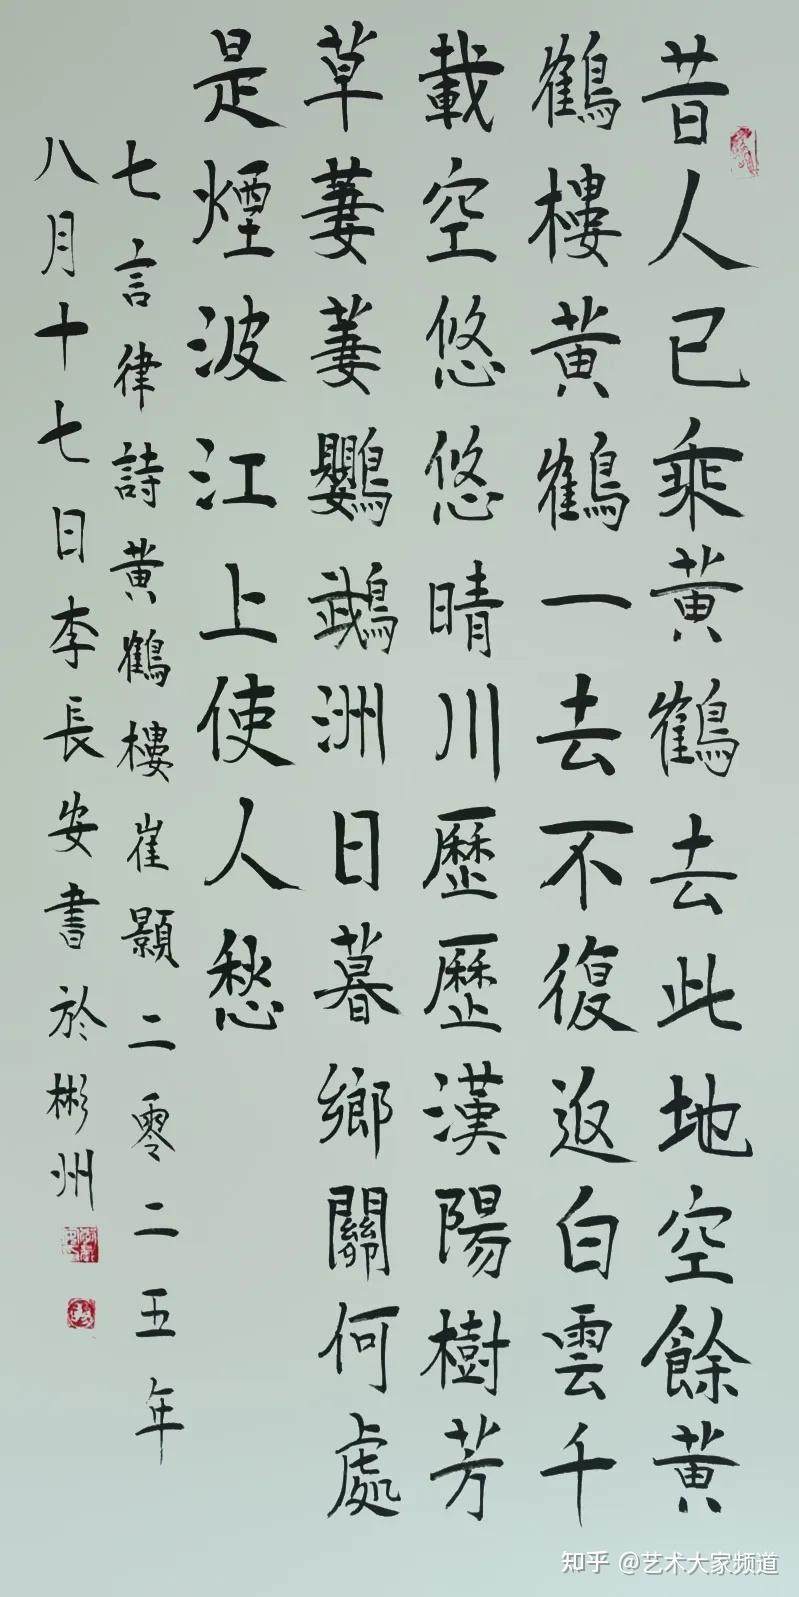 昔人已乘黄鶴去此地空餘黄
鶴樓黄鶴一去不復返白雲千
載空悠悠晴川歷歷漢陽樹芳
草萋萋鸚鵡洲日暮鄉關何處
是煙波江上使人愁
七言律詩黄鶴樓崔顥二零二五年
八月十七日李長安書於彬州
知乎 @艺术大家频道